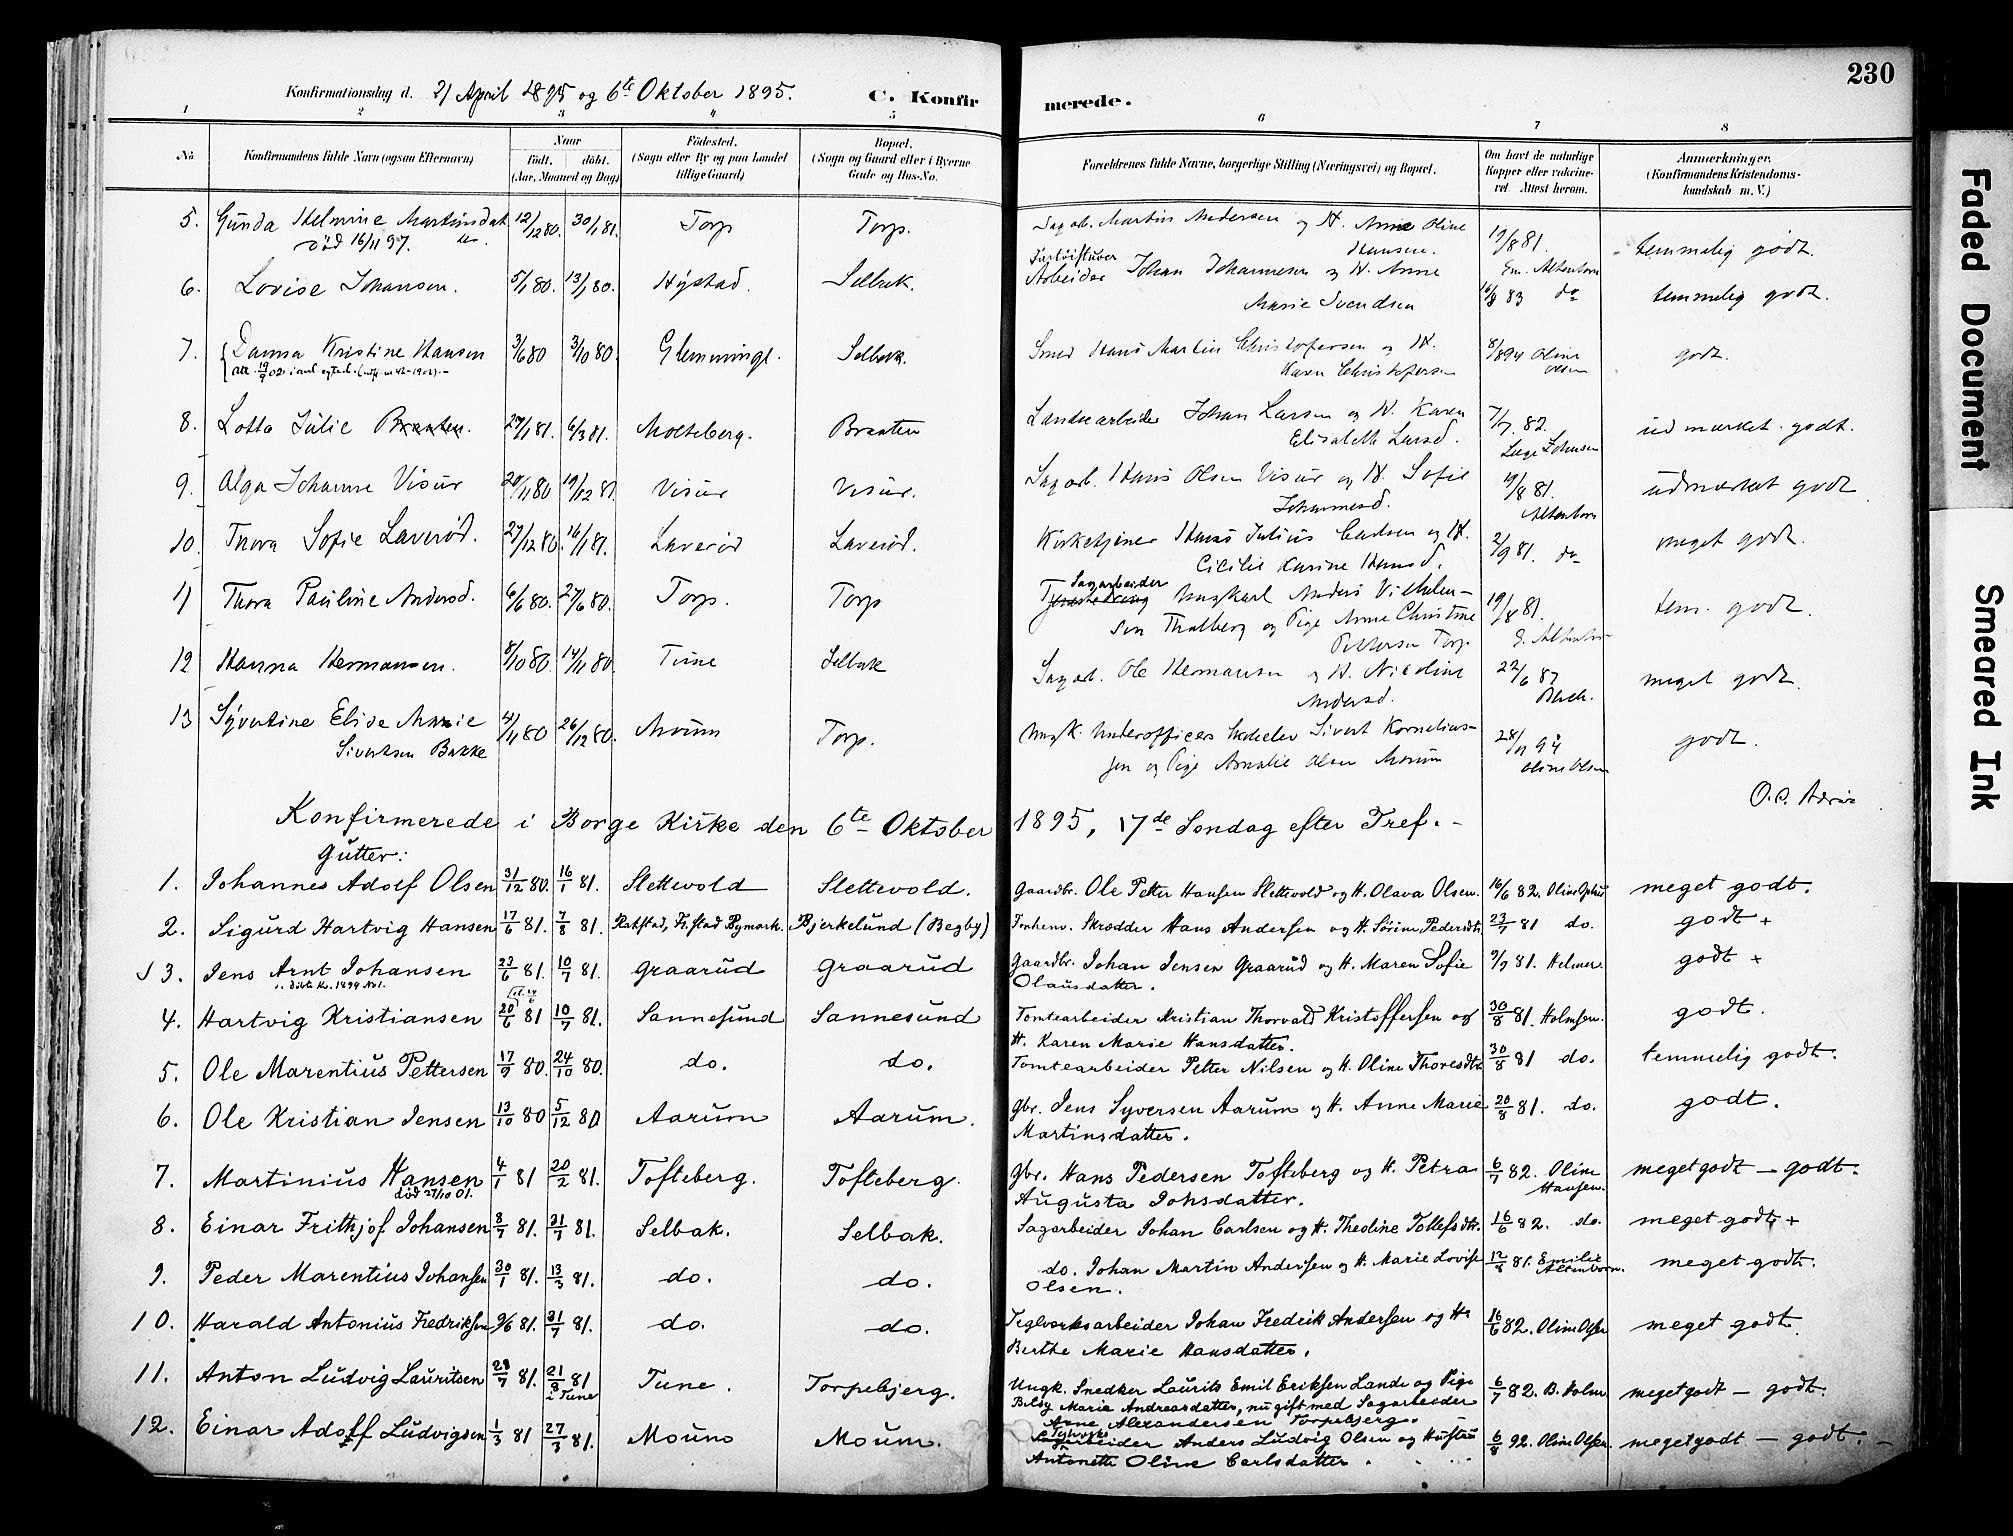 230
Konfirmationsdag d. 21 April 1895 og 6te Oktober 1895. C. Konfirmerede.
1 2 3 4 5 6 7 8
No. Konfirmandens fulde Navn (ogsaa Efternavn) Naar født. døbt. (Aar, Maaned og Dag) Fødested. (Sogn eller By og paa Landet tillige Gaard) Bopæl. (Sogn og Gaard eller i Byerne Gade og Hus-No. Forældrenes fulde Navne, borgerlige Stilling (Næringsvei) og Bopæl. Om havt de naturlige Kopper eller vaccineret. Attest herom. Anmærkninger. (Konfirmandens Kristendomskundskab m. V.)
5. Gunda Helmine Martinsdat 12/12 80. 30/1 81. Torp Torp. Sagarb. Martin Andersen og H. Anne Oline Hansen. 19/8 81. Em. Altenborn temmelig godt.
død 16/11 97.
6. Lovise Johansen. 5/1 80. 13/1 80. Hystad. Selbak. Arbeider Johan Johannesen og H. Anne Marie Svendsen 16/8 83 do temmelig godt.
7. Danna Kristine Hansen 3/6 80 3/10 80. Glemminge. Selbak. Smed Hans Martin Christofersen og H. Karen Christofersen 8/8 94 Oline Olsen godt.
8. Lotta Julie Braaten. 27/1 81. 6/3 81. Molteberg. Braaten Landearbeider Johan Larsen og H. Karen Elisabeth Larsd. 7/7. 82. Læge Johnsen udmærket godt.
9. Olga Johanne Visur 20/11 80 19/12 81. Visur Visur. Sagarb. Hans Olsen Visur og H. Sofie Johannesd. 19/8 81. Altenborn udmærket godt
10. Thora Sofie Laverød. 27/12 80. 16/1 81. Laverød Laverød. Kirketjener Hans Julius Carlsen og H. Cicilie Karine Hansd. 2/9 81. do meget godt.
11 Thora Pauline Andersd. 6/6 80. 27/6 80. Torp. Torp Sagarbeider Ungkarl Anders Vilhelmsen Thalberg og Pige Anne Christine Pettersen Torp 19/8 81. E. Altenborn tem. godt.
12 Hanna Hermansen. 8/10 80. 14/11 80. Tune Selbak Sagarb. Ole Hermansen og H. Nicoline Andersd. 22/6 87 meget godt.
13 Syvertine Elise Marie Sivertsen Bakke 4/11 80 26/12 80. Moum Torp. Ungk. Underofficers Sivert Korneliussen og Pige Amalie Olsen Moum 28/11 94 Oline Olsen godt.
Konfirmerede i Borge Kirke den 6te Oktober 1895, 17de Søndag efter Tref. -
Gutter:
1. Johannes Adolf Olsen 31/12 80. 16/1 81. Slettevold Slettevold. Gaardbr. Ole Petter Hansen Slettevold og H. Olava Olsen. 16/6 82. meget godt.
2. Sigurd Hartvig Hansen 17/6 81. 7/8 81. Rakstad, Fr.stad Bymark. Bjerkelund (Begby) Skrædder Hans Andersen og H. Sørine Pedersdtr. 23/7 81 do. godt +
3. Jens Arnt Johansen 23/6 81. 10/7 81. Graarud Graarud Gaardbr. Johan Jensen Graarud og H. Maren Sofie Olausdatter. 9/9 81. Helmer. godt +
4. Hartvig Kristiansen 20/6 81 10/7 81. Sannesund Sannesund Tomtearbeider Kristian Thorvald Kristoffersen og H. Karen Marie Hansdatter. 30/8 81. Holmsen. godt.
5. Ole Marentius Pettersen 17/9 80. 24/10 80. do. do. Tomtearbeider Petter Nilsen og H. Oline Thoresdtr 30/8 81 do. temmelig godt.
6. Ole Kristian Jensen 13/10 80 5/12 80 Aarum Aarum. Gbr. Jens Syversen Aarum og H. Anne Marie Martinsdatter. 20/8 81. do. godt.
7. Martinius Hansen 4/1 81 20/2 81. Tofteberg. Tofteberg. Gbr. Hans Pedersen Tofteberg og H. Petra Augusta Johsdatter. 6/7 82. Oline Hansen. meget godt - godt.
død 27/10 01.
8. Einar Frithjof Johansen 8/7 81. 31/7 81. Selbak. Selbak. Sagarbeider Johan Carlsen og H. Thedine Tollefsdtr. 16/6 82. do. meget godt +
9. Peder Marentius Johansen 30/1 81. 13/3 81. do. do. do. Johan Martin Andersen og H. Marie Lovise Olsen. 12/8 81. Emilie Altenborn. meget godt.
10. Harald Antonius Fredriksen 9/6 81. 31/7 81. do. do. Teglverksarbeider Johan Fredrik Andersen og H. Berthe Marie Hansdatter. 16/6 82. Oline Olsen meget godt.
11. Anton Ludvig Lauritsen 28/7 81. 21/8 81 i Tune Tune. Torpebjerg. Ungk. Snedker Laurits Emil Eriksen Lande og Pige Betsy Marie Andreasdatter, nu gift med Sagarbeider Arne Alexandersen Torpebjerg. 6/7 82. B. Holm meget godt - godt.
12. Einar Adolf Ludvigsen 1/3 81 27/3 81. Moum Moum. Teglverksarbeider Anders Ludvig Olsen og Hustru Antonette Oline Carlsdatter. 6/8 92. Oline Olsen. meget godt - godt.
Faded Document
Smeared Ink